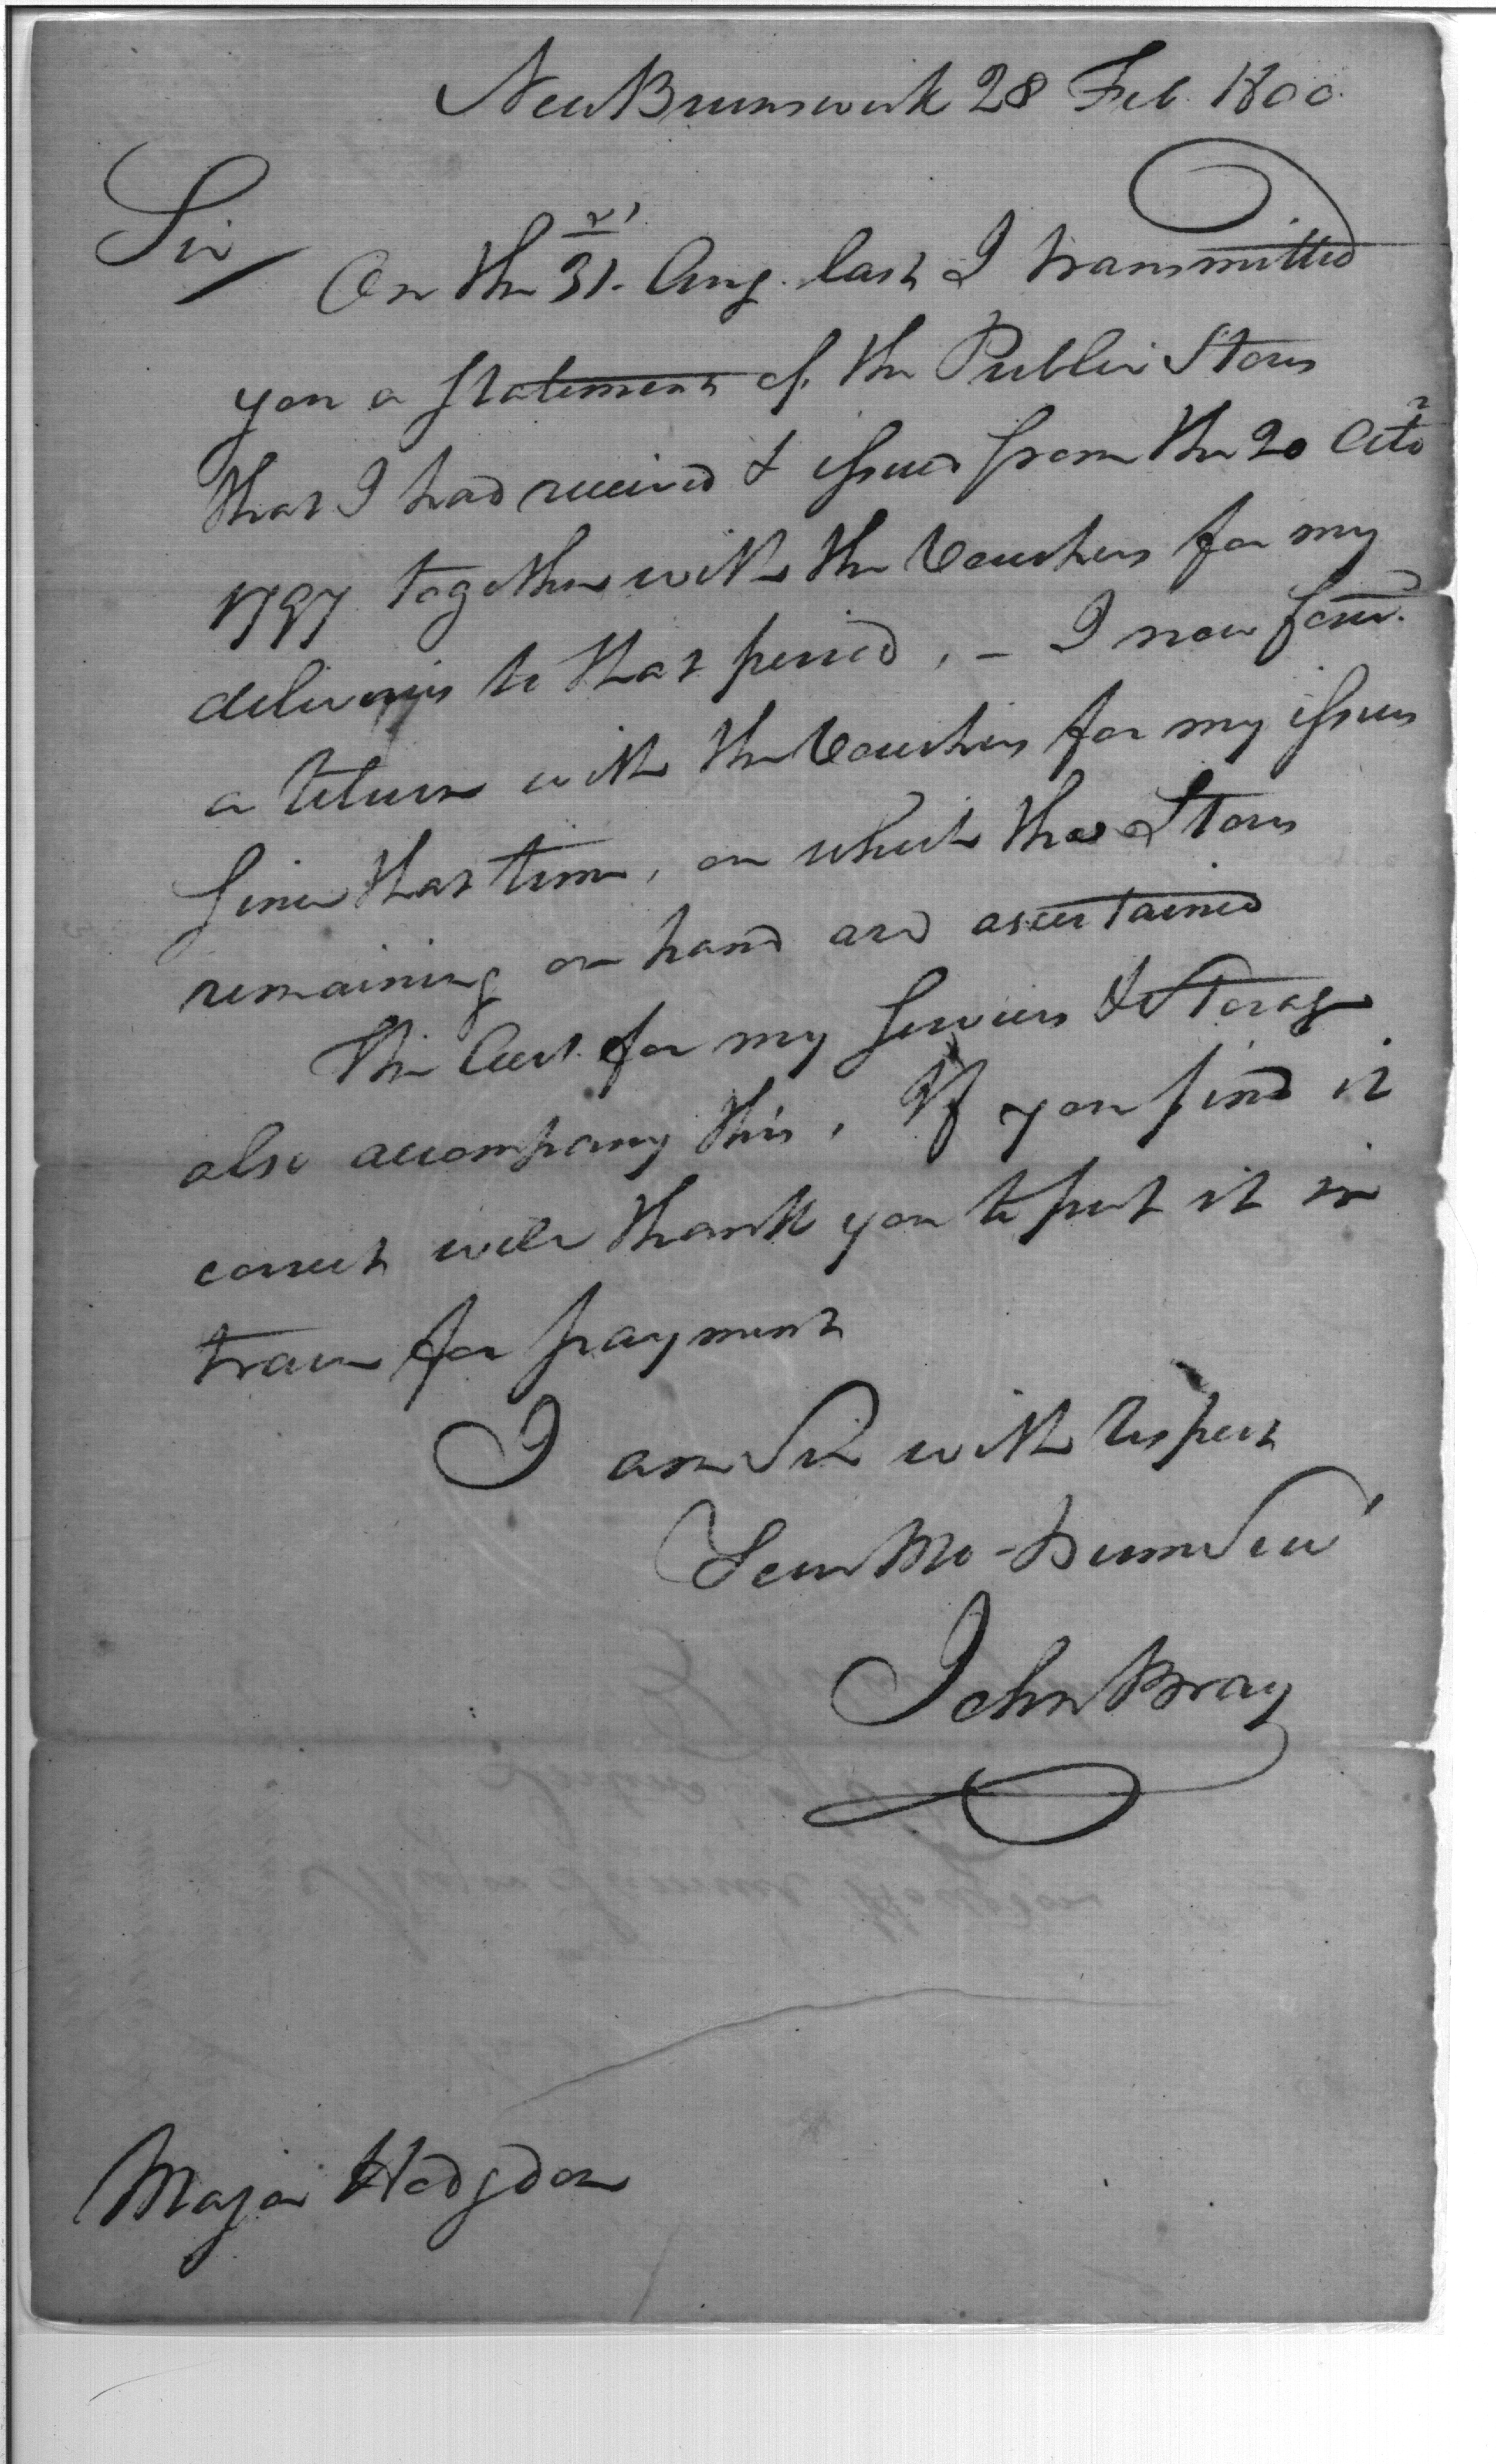 New Brunswick 28 Feb. 1800.
Sir/
On the 31st. Aug. last I transmitted
you a statement of the Public Stores
that I had received & issued from the 20 Octor
1797 together with the Vouchers for my
deliveries to that period, – I now forwd.
a return with the Vouchers for my issues
since that time, on which the Stores
remaining on hand are ascertained
The Acct. for my services & Storage
also accompany this. If you find it
correct will thank you to put it in
train for payment
I am Sir with respect
Your Mo- Humr Ser
John Bray
Major Hodgdon